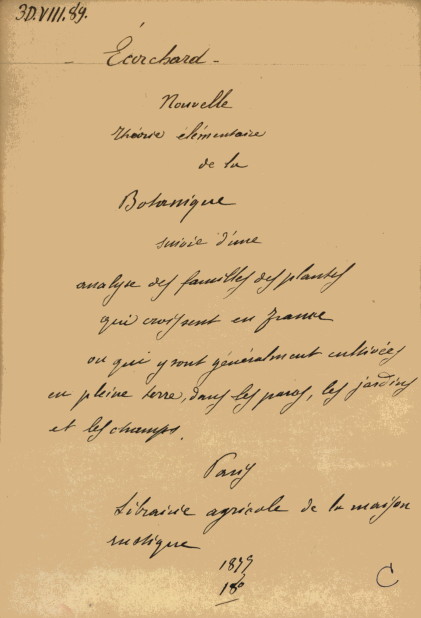 3D.VIII.89.
Écorchard -
Nouvelle
théorie élémentaire
de la
Botanique
suivie d'une
analyse des familles des plantes
qui croissent en France
ou qui y sont généralement cultivées
en pleine terre, dans les parcs, les jardins
et les champs.
Paris
Librairie agricole de la maison
rustique
1877
18º
C